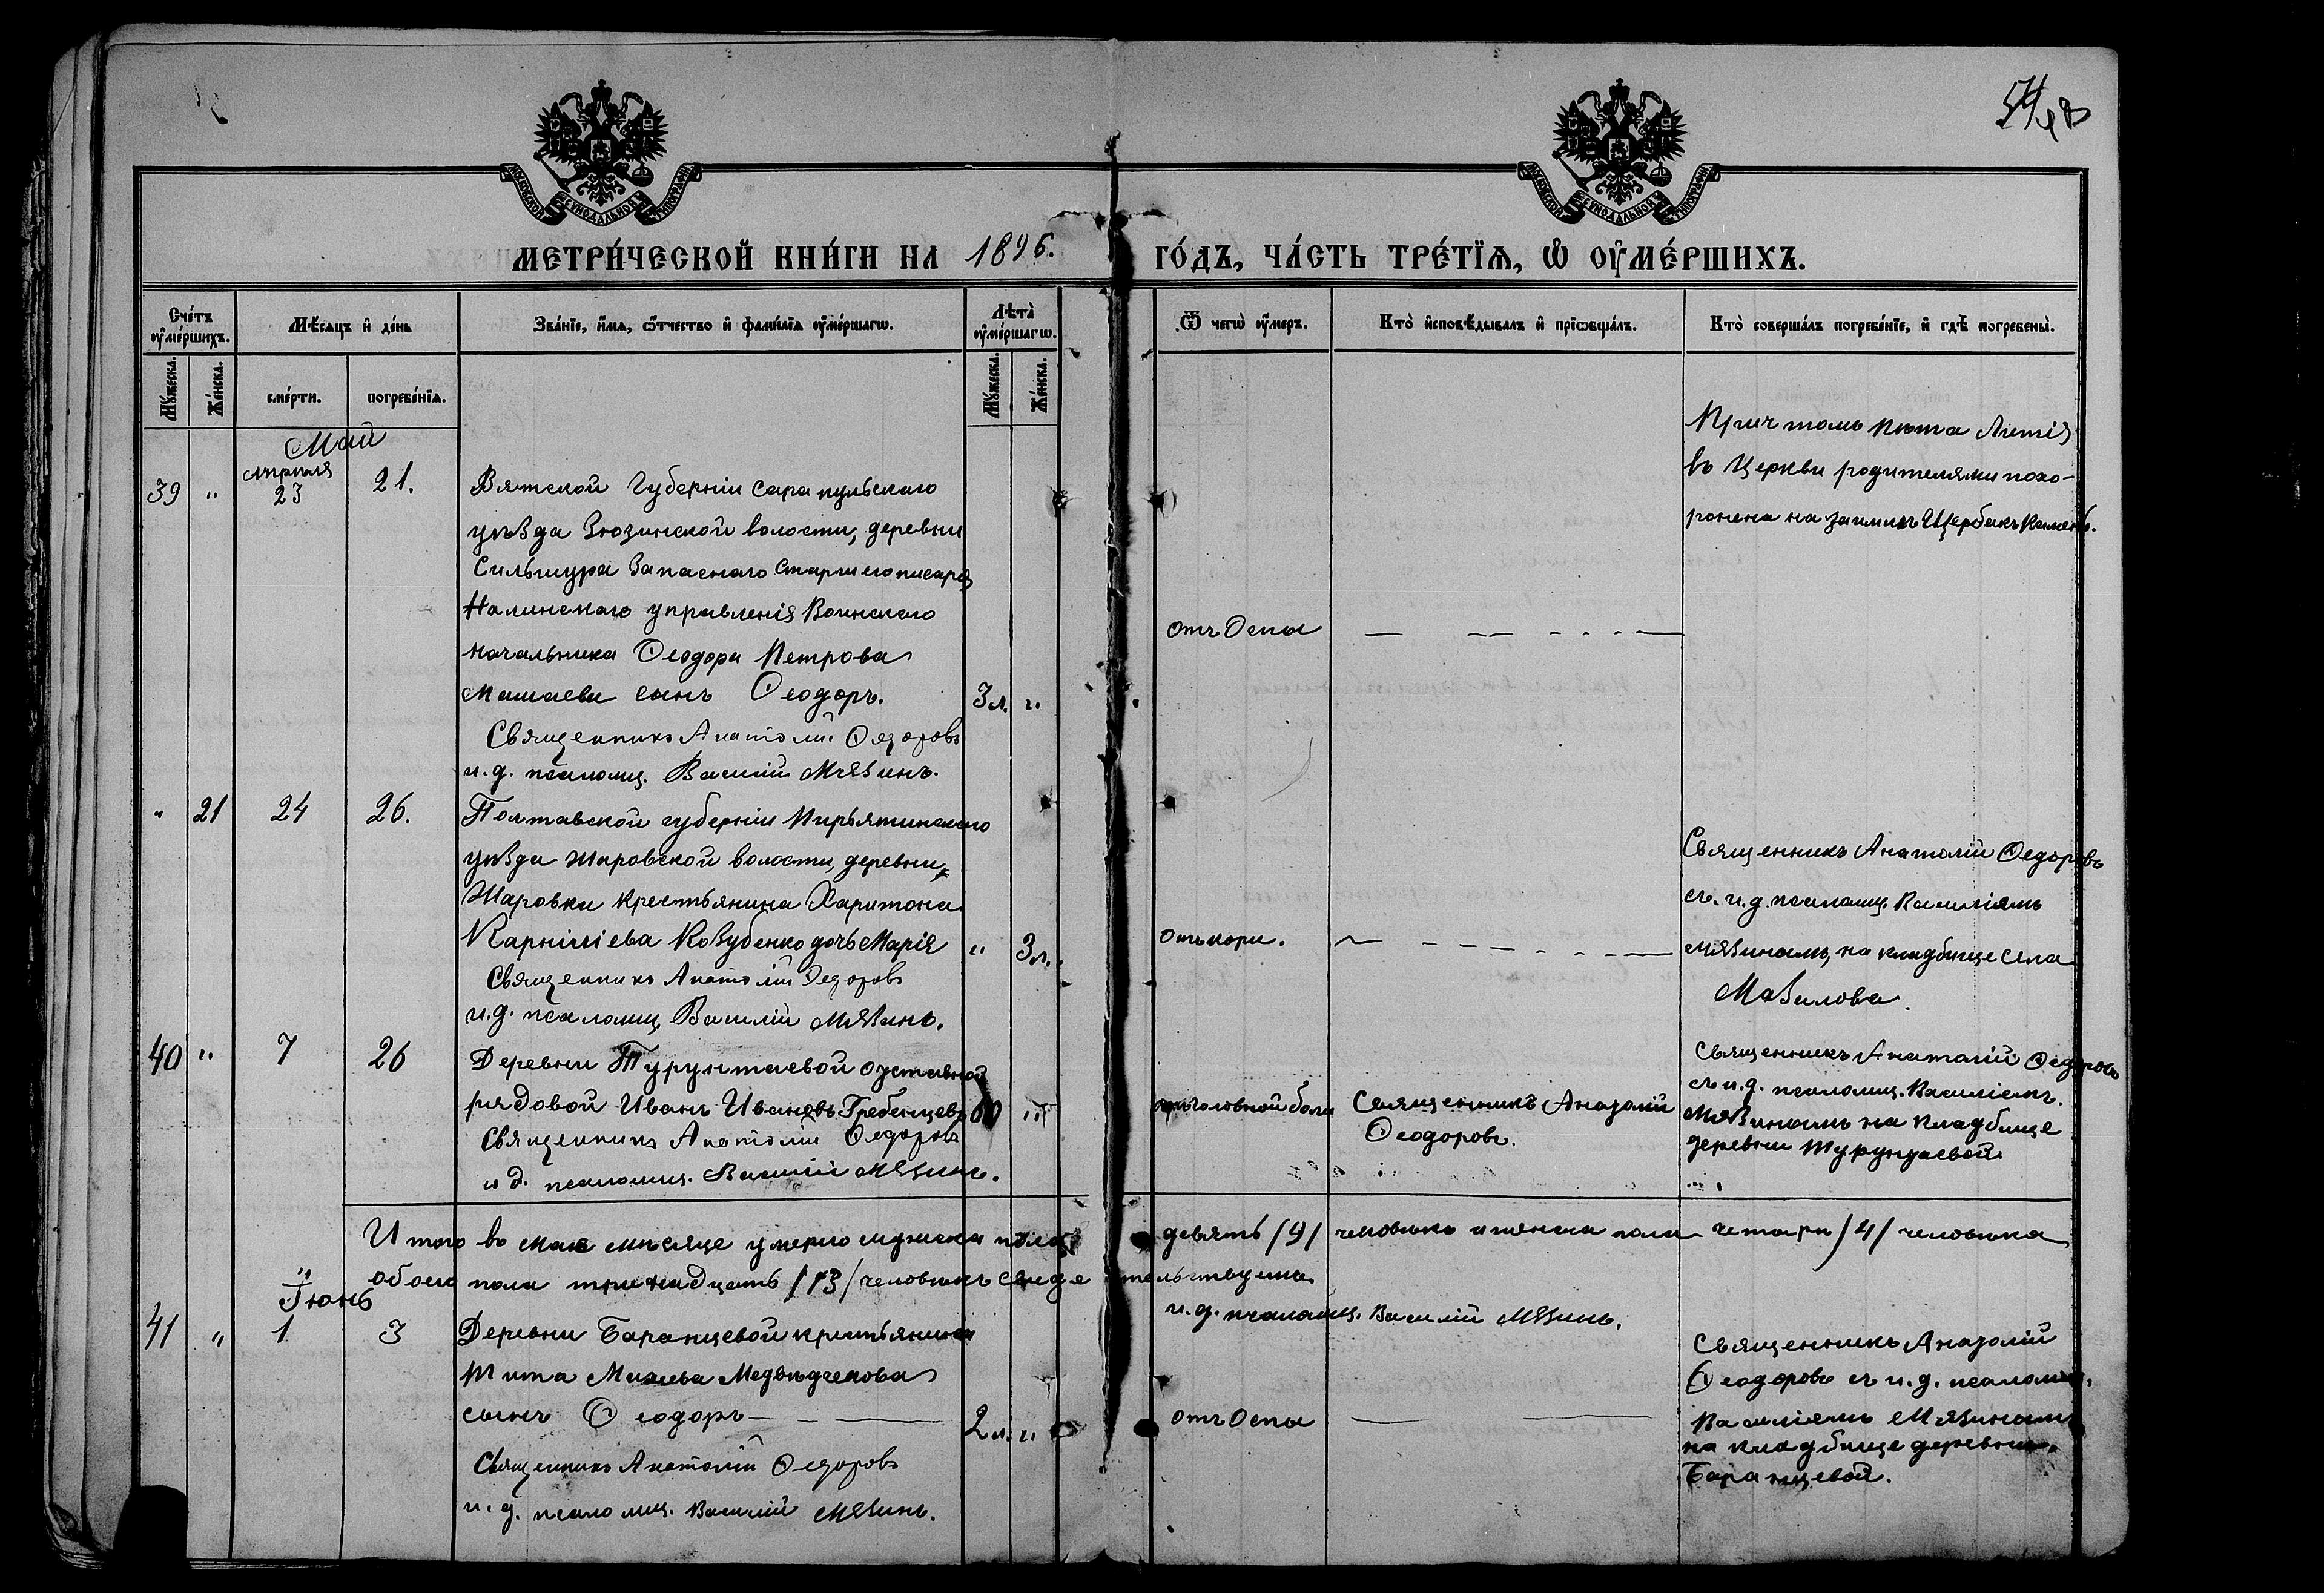 МОСКОВСКОЙ СУНОДАЛЬНОЙ ТИПОГРАФІИ
МОСКОВСКОЙ СУНОДАЛЬНОЙ ТИПОГРАФІИ
МЕТРИ́ЧЕСКОЙ КНИ́ГИ НА 1896. ГО́ДЪ, ЧА́СТЬ ТРЕ́ТІѦ, Ѡ ОУМЕ́РШИХЪ.
Сче́тъ оуме́ршихъ.
Мꙋ́жеска.
Же́нска.
Мѣ́сѧцъ и де́нь
сме́рти.
погребе́нїѧ.
Зва́нїе, и́мѧ, ѻ́тчество и фами́лїѧ оуме́ршагѡ.
Лѣта̀ оуме́ршагѡ.
Мꙋ́жеска.
Же́нска.
Ѿ чегѡ̀ оу́меръ.
Кто̀ и҆сповѣ́дывалъ и прїѡбща́лъ.
Кто̀ соверша́лъ погребе́нїе, и гдѣ̀ погребены̀.
Май
39 " Апрѣля 23 21.
Вятской Губерніи Сарапульскаго
уѣзда Зюзинской волости, деревни
Сильшура Запаснаго Старшего писаря
Налинскаго управленія Воинскаго
начальника Ѳеодора Петрова
Машаева сынъ Ѳеодоръ. 3 л. "
Священникъ Анатолій Ѳедоровъ
и.д. псаломщ. Василій Мязинъ.
отъ Оспы
Причтомъ пѣта Литія
въ Церкви родителями похо-
ронена на заимкѣ Щербакъ Камень.
" 21 24 26.
Полтавской губерніи Пирьятинскаго
уѣзда Шаровской волости, деревни
Шаровки крестьянина Харитона
Карнилiева Козубенко дочь Марія " 3 л.
Священникъ Анатолій Ѳедоровъ
и.д. псаломщ Василій Мязинъ.
отъ кори.
Священникъ Анатолій Ѳедоровъ
съ и.д. псаломщ. Василіемъ
Мязинымъ, на кладбище села
Мазилова.
40 " 7 26
Деревни Турунтаевой отставной
рядовой Иванъ Ивановъ Гребенщевъ 60 "
Священникъ Анатолій Ѳедоровъ
и д. псаломщ. Василій Мязинъ.
головной боли
Священникъ Анатолій
Ѳеодоровъ.
Священникъ Анатолій Ѳедоровъ
съ и.д. псаломщ. Василіемъ
Мязинымъ на кладбище
деревни Турунтаевой
Итого въ маѣ мѣсяце умерло мужска пола девять /9/ человѣкъ и женска пола четыри /4/ человѣка
обоего пола тринадцать /13/ человѣкъ свидетельствуемъ
и.д. псаломщ. Василій Мязинъ.
Іюнь
41 " 1 3
Деревни Баранцевой крестьянина
Тита Михеева Медвѣдчекова
сынъ Ѳеодоръ 2 л. "
Священникъ Анатолій Ѳедоровъ
и.д. псаломщ. Василій Мязинъ.
отъ Оспы
Священникъ Анатолій
Ѳеодоровъ съ и.д. псаломщ.
Василіемъ Мязинымъ
на кладбище деревни
Баранцевой.